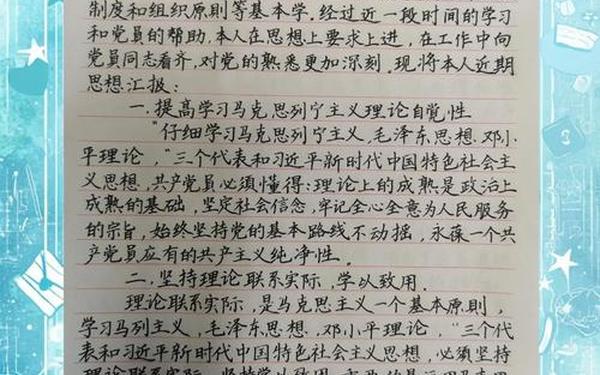 制度和组织原则等基本学.经过近一段时间的学习
和党员的帮助,本人在思想上要求上进,在工作中向
党员同志看齐,对党的熟悉更加深刻.现将本人近期
思想汇报:
一.提高学习马克思列宁主义理论自觉性
"仔细学习马克思列宁主义,毛泽东思想.邓小
平理论,"三个代表和习近平新时代中国特色社会主
义思想,共产党员必须懂得:理论上的成熟是政治上
成熟的基础,坚定社会信念,牢记全心全意为人民服务
的宗旨,始终坚持党的基本路线不动摇,永葆一个共
产党员应有的共产主义纯净性.
二.坚持理论联系实际,学以致用.
理论联系实际,是马克思主义一个基本原则,
学习马列主义,毛泽东思想.邓小平理论,"三个代
表和习近平新时代中国特色社会主义思想,必须坚持
理论联系实际,坚持学以致用